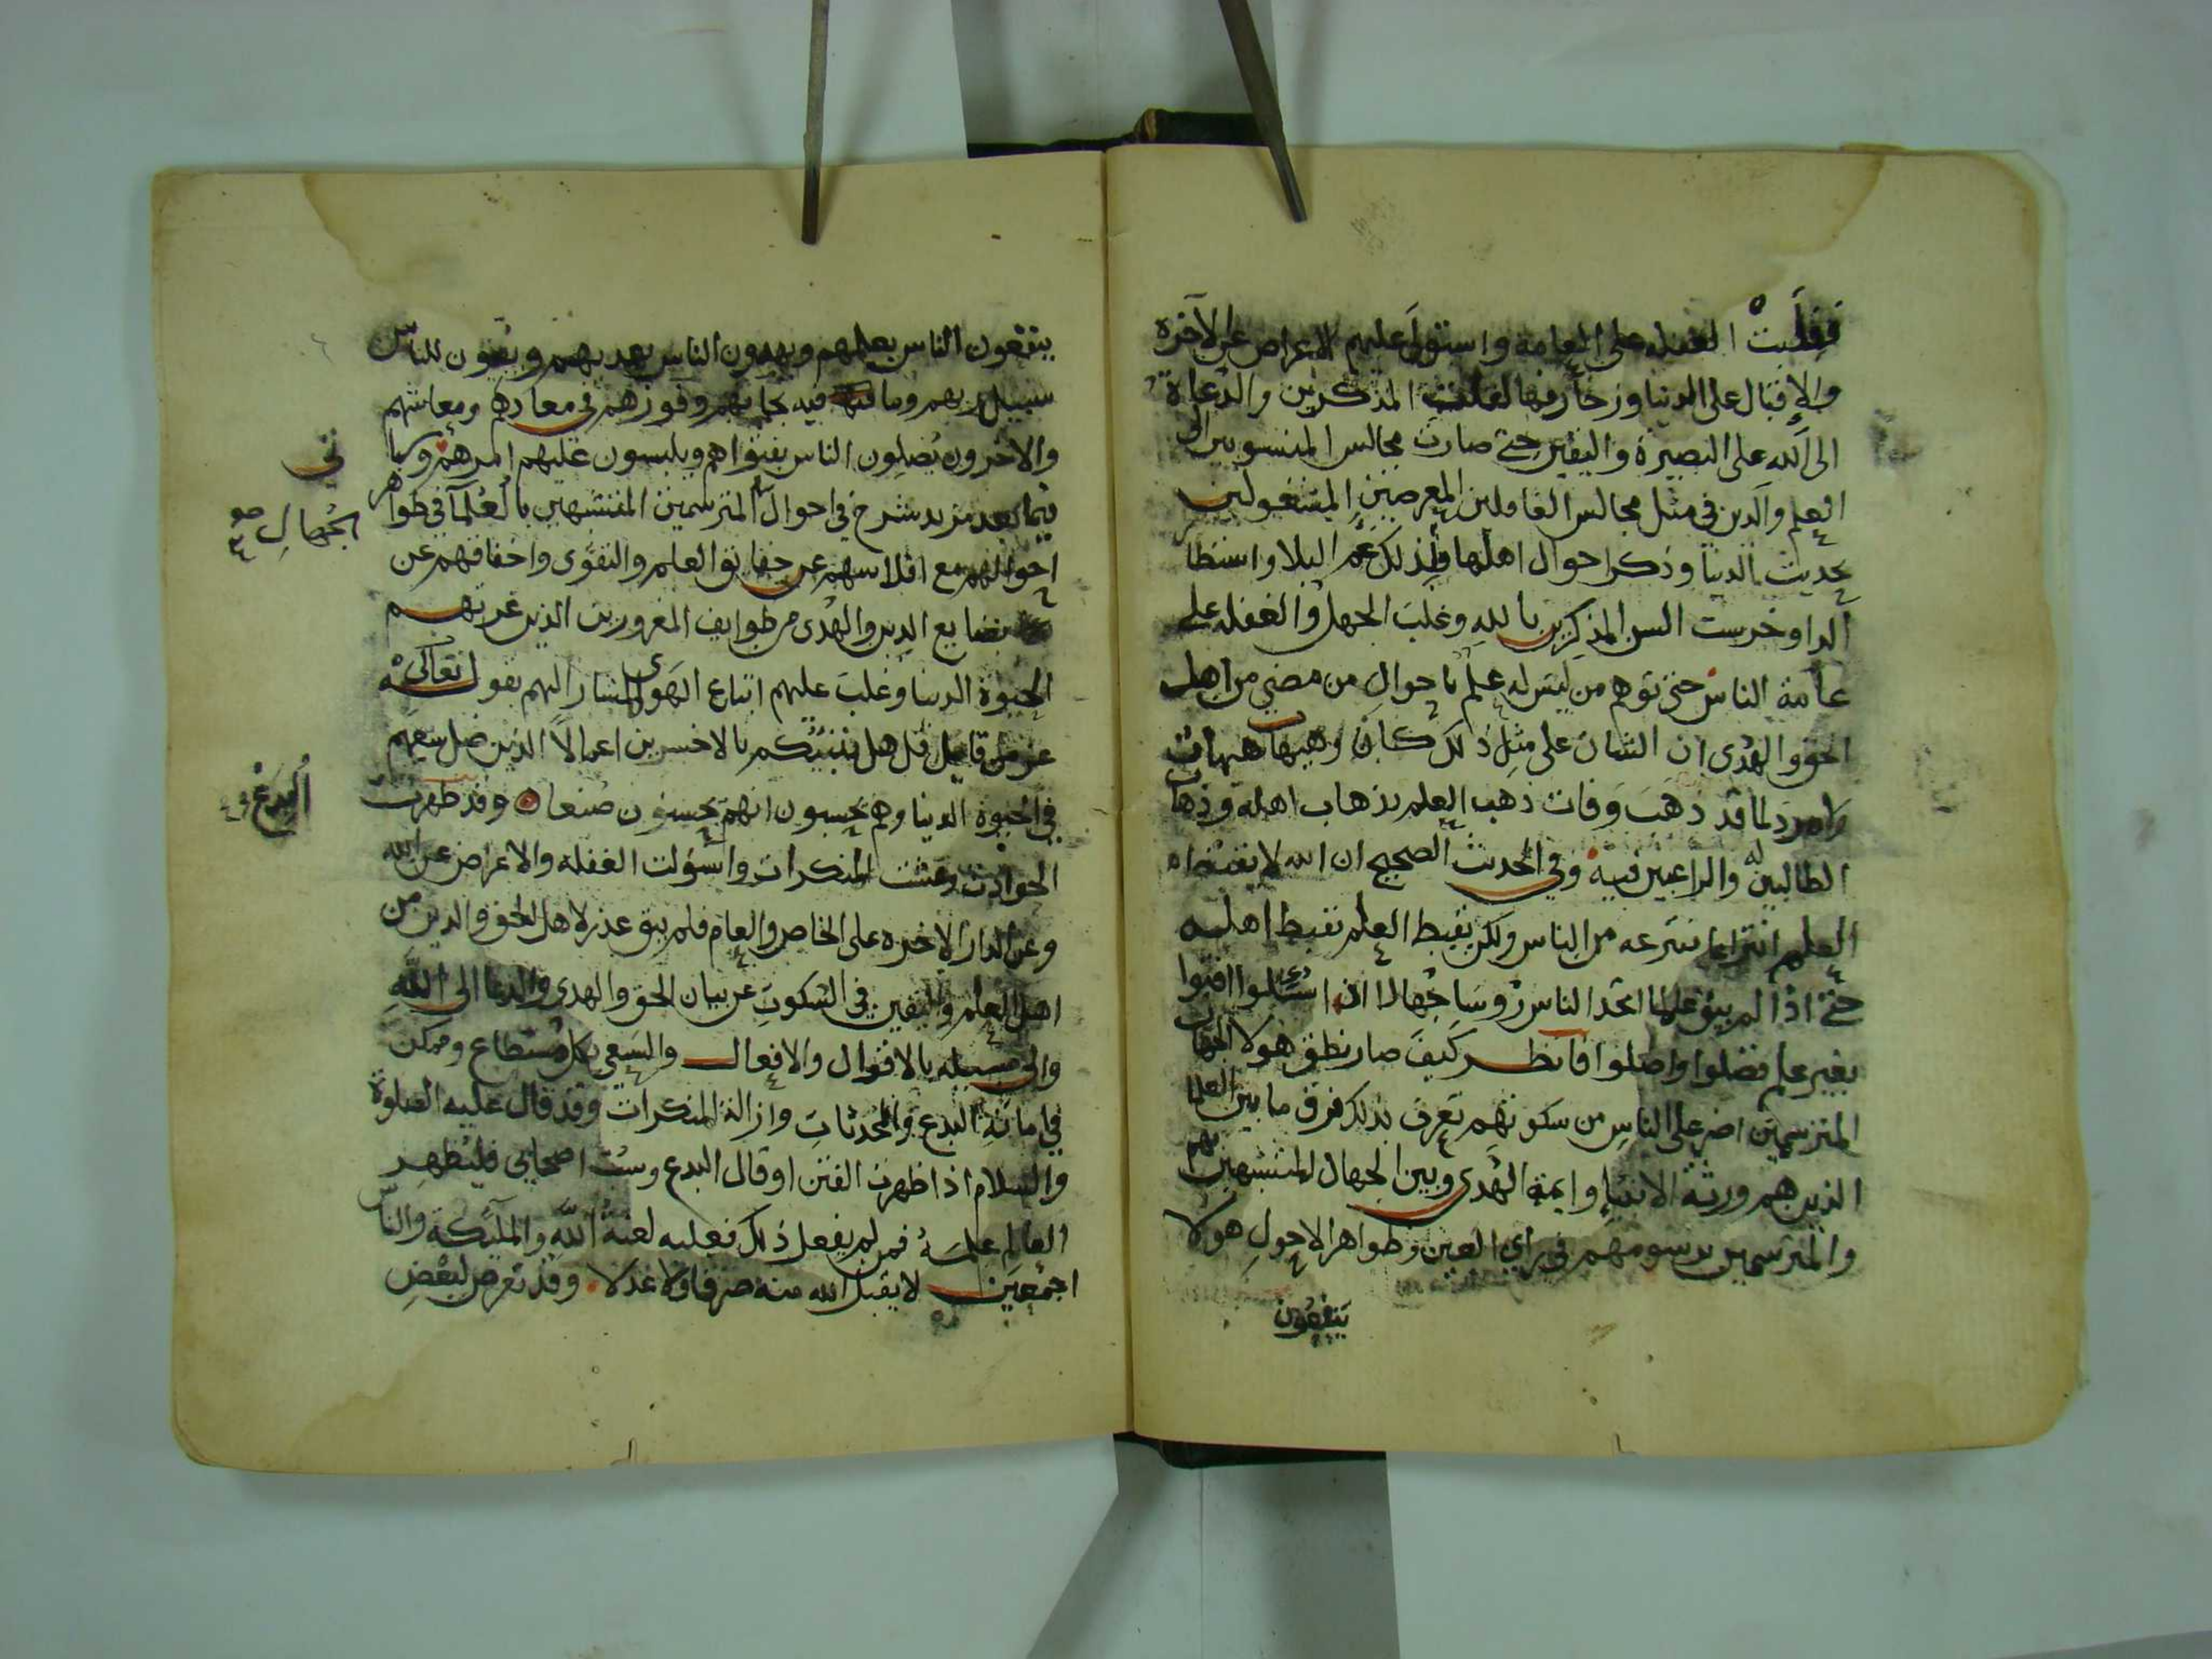 فغلبت الغفله على العامة واستولى عليهم الاعراض عن الآخره
والإقبال على الدنيا وزخارفها لغلفت المذكرين والدعاة
الى الله على البصيرة واليقين حتى صارت مجالس المنسوبين الى
العلم والدين في مثل مجالس الغافلين المعرضين المشغولين
بحديث الدنيا وذكر احوال اهلها فلذلك عم البلا واستطار
الدا وخرست السن المذكرين بالله وغلب الجهل والغفله على
عامة الناس حتى توهم من ليس له علم باحوال من مضى من اهل
الحق والهدى ان الشان على مثل ذلك كان وهيهات هيهات
لا مرد لما قد ذهب وفات ذهب العلم بذهاب اهله وذهاب
الطالبين له والراغبين فيه وفي الحديث الصحيح ان الله لا يقبض
العلم انتزاعا ينتزعه من الناس ولكن يقبض العلم بقبض اهليه
حتى اذا لم يبق عالما اتخذ الناس رؤسا جهالا اذا سئلوا افتوا
بغير علم فضلوا واضلوا فانظر كيف صار نطق هولا الجهال
المترسمين اضر على الناس من سكوتهم تعرف بذلك فرق ما بين العلما
الذين هم ورثة الانبيا وايمة الهدى وبين الجهال المتشبهين بهم
والمترسمين برسومهم في راي العين وظواهر الاحول هولا
ينفعون
ينفعون الناس بعلمهم ويهدون الناس بهديهم ويبينون للناس
سبيل ربهم وما فيه نجاتهم وفوزهم في معادهم ومعاشهم
والاخرون يضلون الناس بفتواهم ويلبسون عليهم امرهم وسيا
تي
فيما بعد مزيد شرح في احوال المترسمين المتشبهين بالعلما في ظواهر
الجهال صح
احوالهم مع افلاسهم عن حقايق العلم والتقوى واخفاقهم عن
بضايع الدين والهدى من طوايف المغرورين الذين غرتهم
الحيوة الدنيا وغلب عليهم اتباع الهوى المشار اليهم بقوله تعالى
عز من قايل قل هل ننبئكم بالاخسرين اعمالا الذين ضل سعيهم
في الحيوة الدنيا وهم يحسبون انهم يحسنون صنعا وقد ظهرت
البدع
الحوادث وفشت المنكرات واستولت الغفله والاعراض عن الله
وعن الدار الاخره على الخاص والعام فلم يبق عذر لاهل الحق والدين من
اهل العلم واليقين في السكوت عن بيان الحق والهدى والدعا الى الله
والى سبيله بالاقوال والافعال والسعي بكل مستطاع وممكن
في اماتة البدع والمحدثات وازالة المنكرات وقد قال عليه الصلوة
والسلام اذا ظهرت الفتن او قال البدع وسب اصحابي فليظهر
العالم علمه فمن لم يفعل ذلك فعليه لعنة الله والمليكة والناس
اجمعين لا يقبل الله منه صرفا ولا عدلا وقد تعرض لبعض